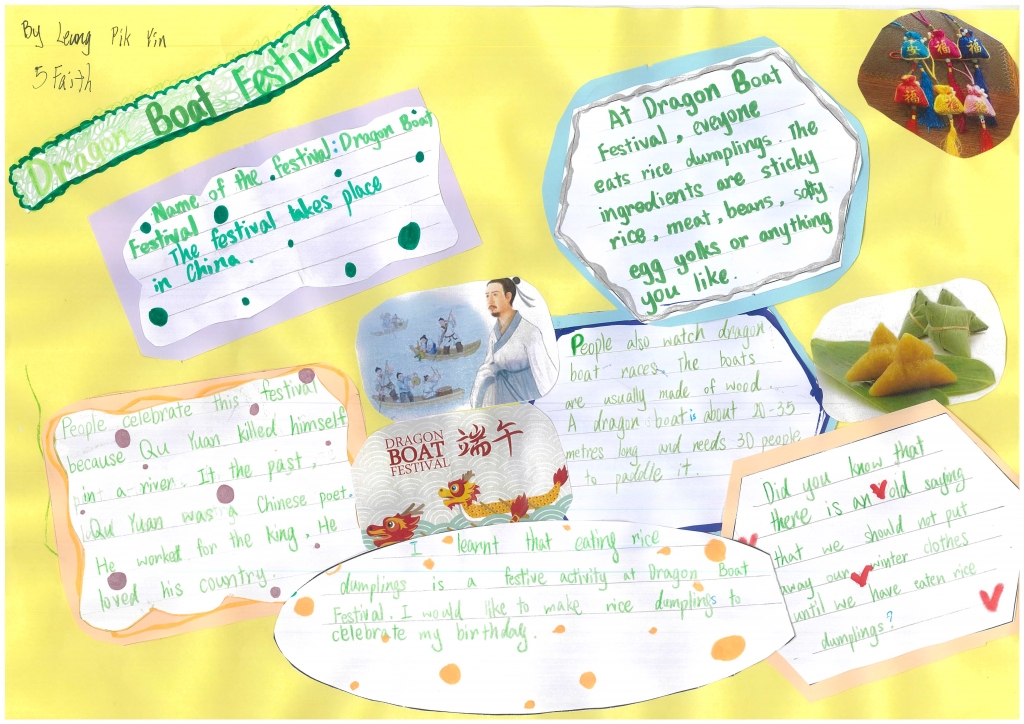 By Leung Pik Yin
5 Faith
Dragon Boat Festival
Name of the festival: Dragon Boat
Festival
The festival takes place
in China.
At Dragon Boat
Festival, eveyone
eats rice dumplings. The
ingredients are sticky
rice, meat, beans, salty
egg yolks or anything
you like.
安 福 福
福 福 福
People also watch dragon
boat races. The boats
are usually made of wood.
A dragon boat is about 20-35
metres long and needs 30 people
to paddle it.
People celebrate this festival
because Qu Yuan killed himself
in a river. It the past,
Qu Yuan was a Chinese poet.
He worked for the king. He
loved his country.
DRAGON
BOAT
FESTIVAL
端午
Did you know that
there is an old saying
that we should not put
away our winter clothes
until we have eaten rice
dumplings?
I learnt that eating rice
dumplings is a festive activity at Dragon Boat
Festival. I would like to make rice dumplings to
celebrate my birthday.